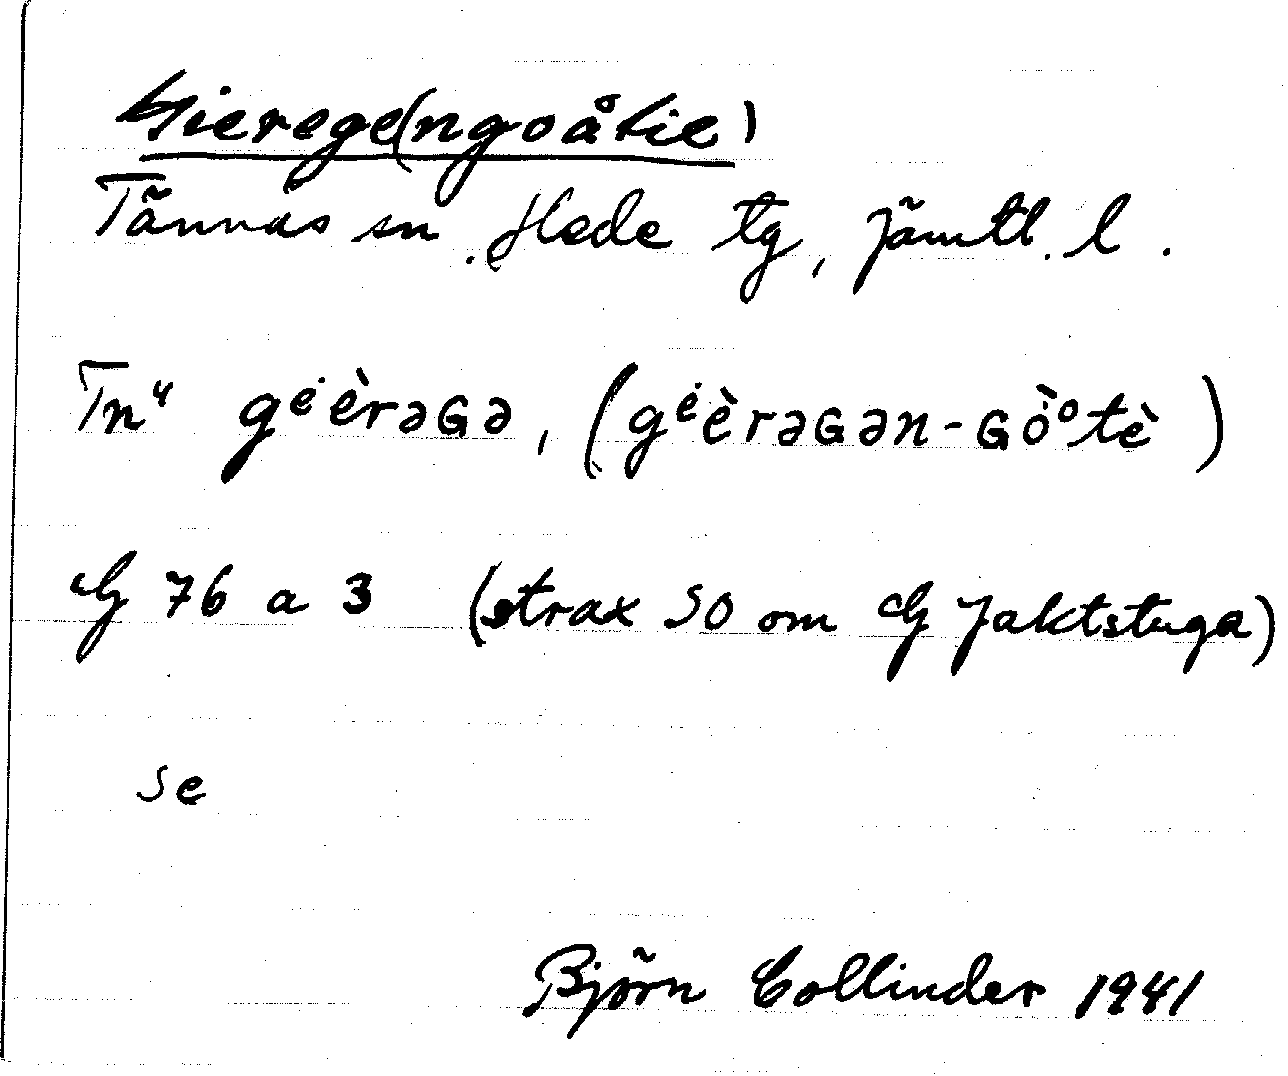 Gierege(ngoåtie)
Tännäs sn. Hede tg, Jämtl. l.
Tnᵘ gᵉ̇èrəɢə, (gᵉ̇èrəɢən-ɢȯ̀ºtè)
G 76 a 3 (strax SO om G Jaktstuga)
se
Björn Collinder 1941